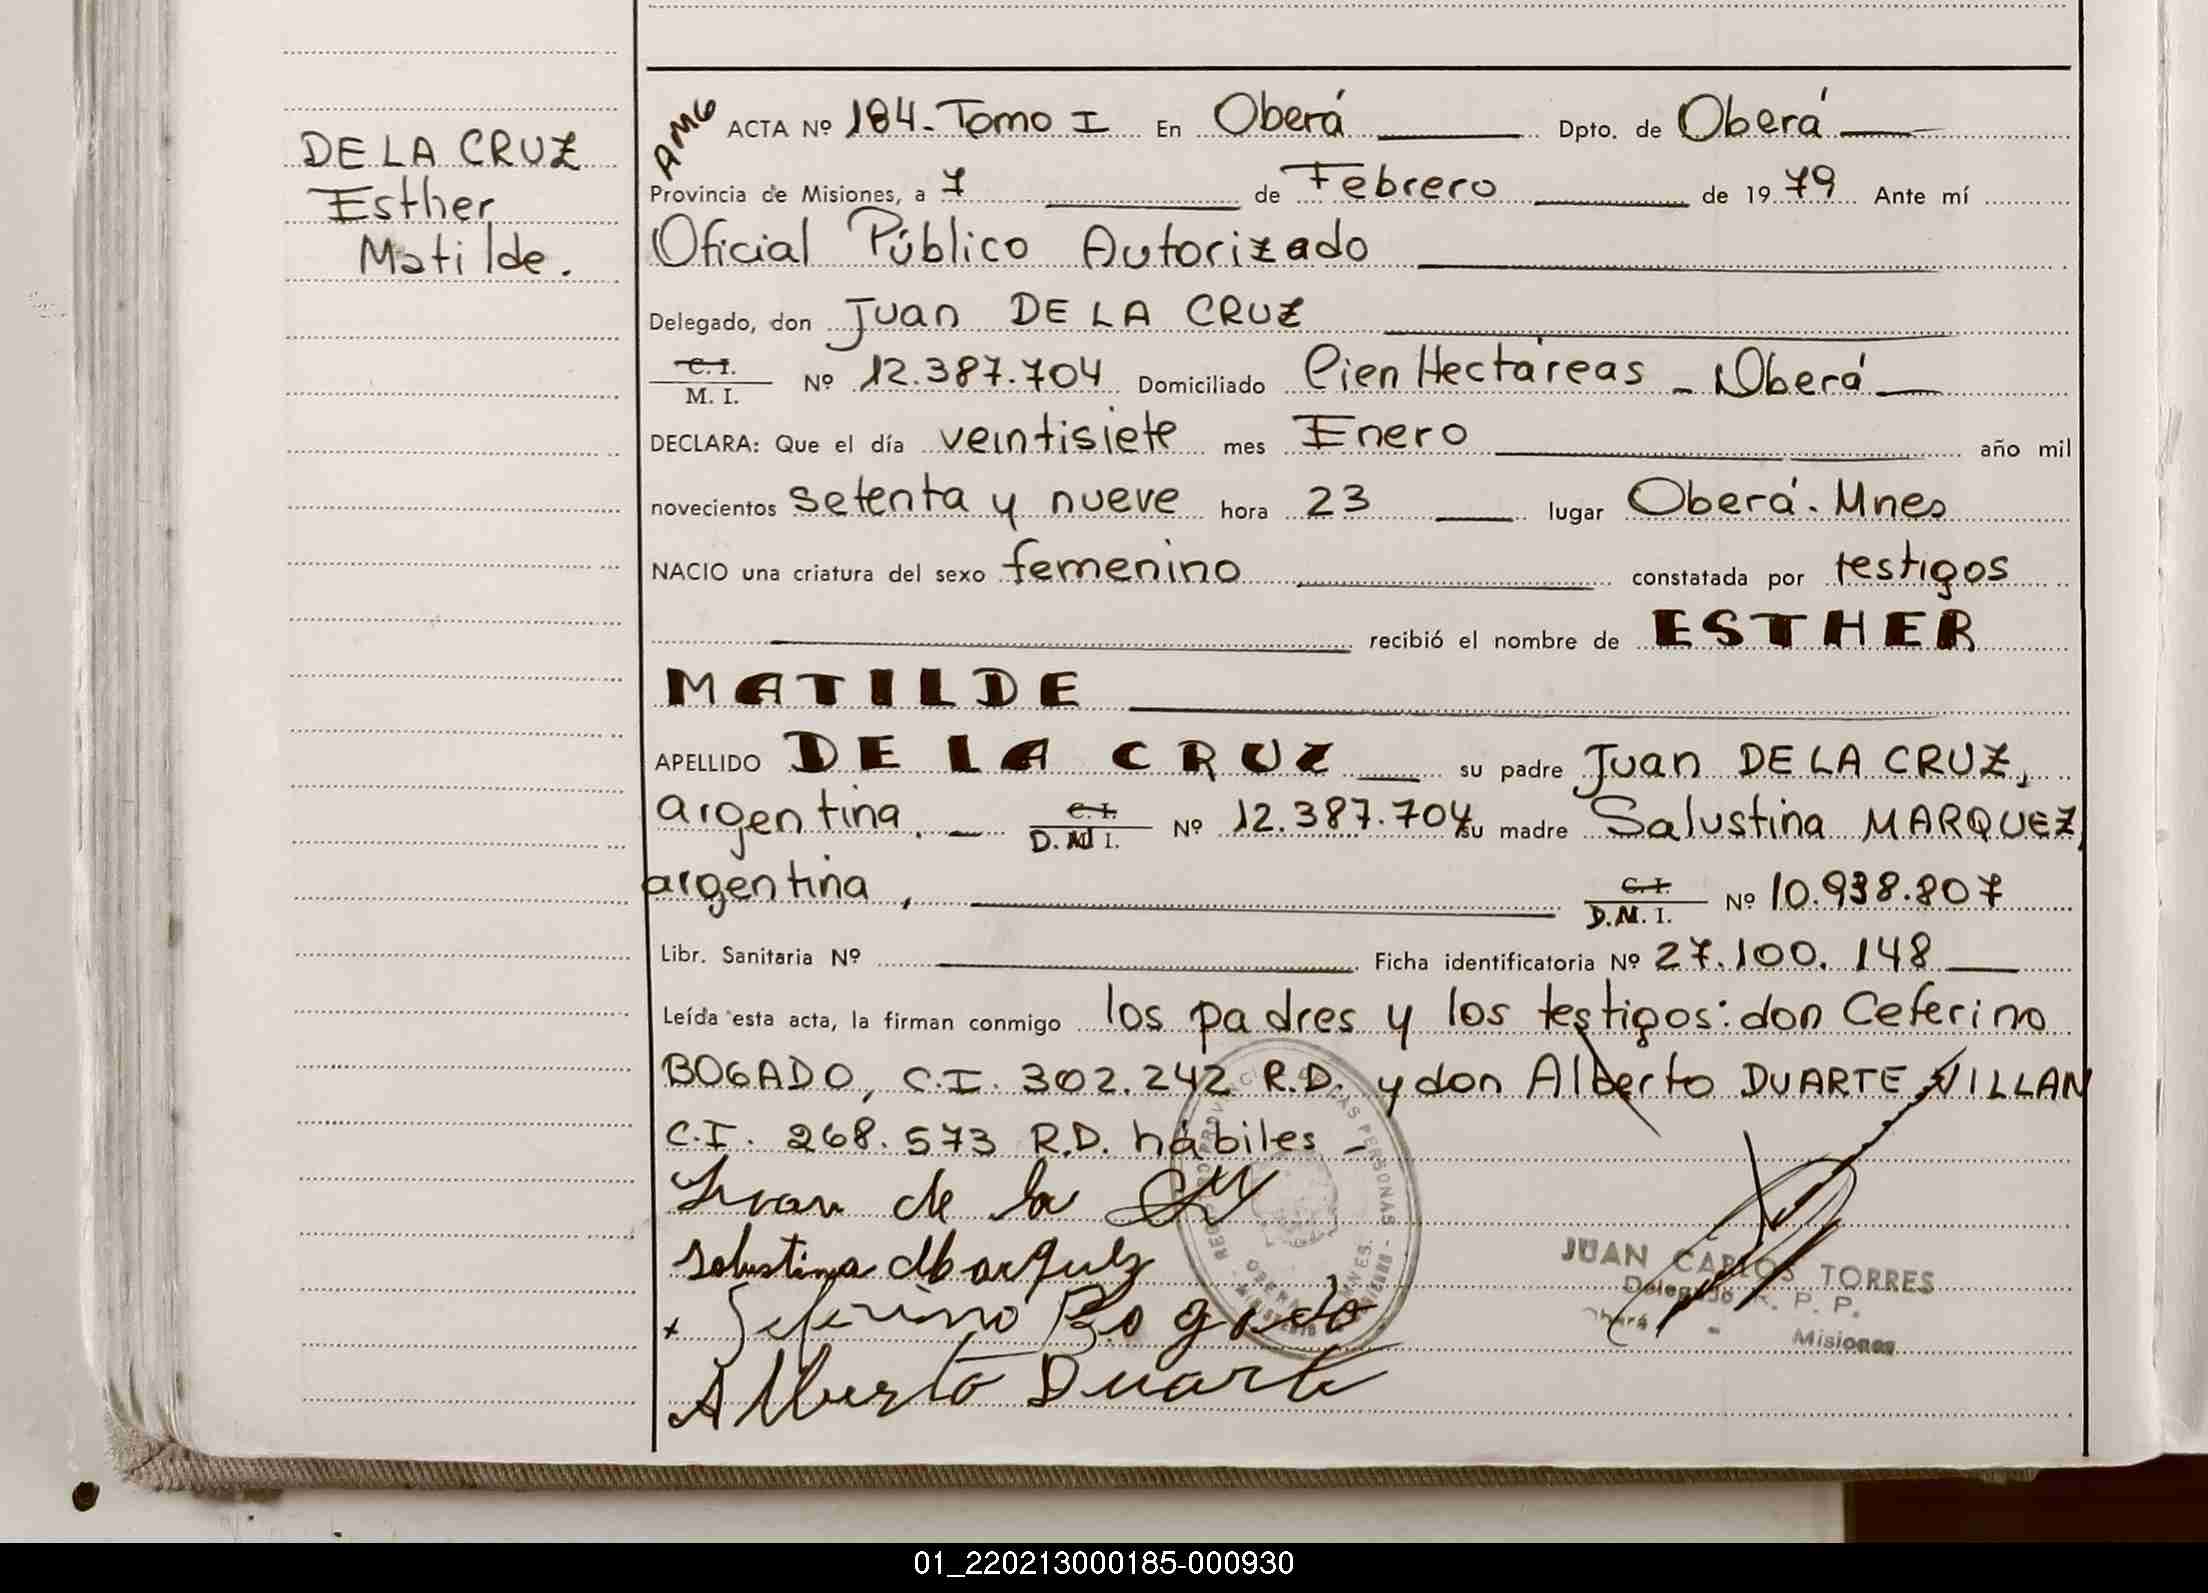 DE LA CRUZ
Esther
Matilde.
AMG
ACTA Nº 184 - Tomo I En Oberá Dpto. de Oberá
Provincia de Misiones, a 7 de Febrero de 1979 Ante mí
Oficial Público Autorizado
Delegado, don Juan DE LA CRUZ
C.I.
M. I. Nº 12.387.704 Domiciliado Cien Hectáreas - Oberá
DECLARA: Que el día veintisiete mes Enero año mil
novecientos setenta y nueve hora 23 lugar Oberá. Mnes
NACIO una criatura del sexo femenino constatada por testigos
recibió el nombre de ESTHER
MATILDE
APELLIDO DE LA CRUZ su padre Juan DE LA CRUZ,
argentina. C.I. D.N I. Nº 12.387.704 su madre Salustina MARQUEZ,
argentina, C.I. D.M. I. Nº 10.938.807
Libr. Sanitaria Nº Ficha identificatoria Nº 27.100.148
Leída esta acta, la firman conmigo los padres y los testigos: don Ceferino
BOGADO, C.I. 302.242 R.D. y don Alberto DUARTE VILLAN
C.I. 268.573 R.D. hábiles -
Juan de la
Salustina Marquez
x Seferino Bogado
Alberto Duarte
JUAN CARLOS TORRES
Delegado R. P. P.
Oberá - Misiones
01_220213000185-000930